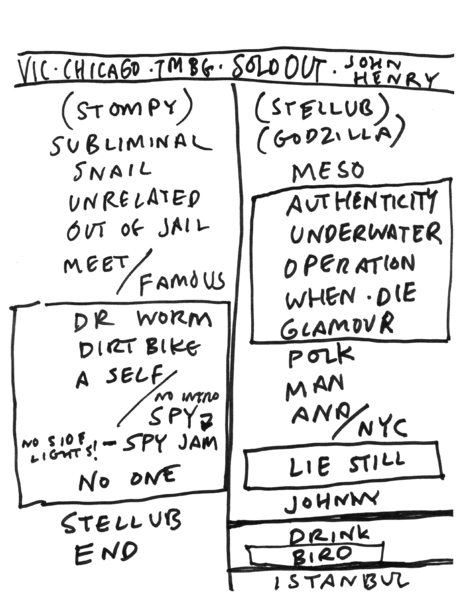 VIC · CHICAGO · TMBG · SOLD OUT · JOHN HENRY
(STOMPY)
SUBLIMINAL
SNAIL
UNRELATED
OUT OF JAIL
MEET/
FAMOUS
DR WORM
DIRT BIKE
A SELF/
NO INTRO
SPY
NO SIDE LIGHTS! - SPY JAM
NO ONE
STELLUB
END
(STELLUB)
(GODZILLA)
MESO
AUTHENTICITY
UNDERWATER
OPERATION
WHEN · DIE
GLAMOUR
POLK
MAN
ANA/NYC
LIE STILL
JOHNNY
DRINK
BIRD
ISTANBUL